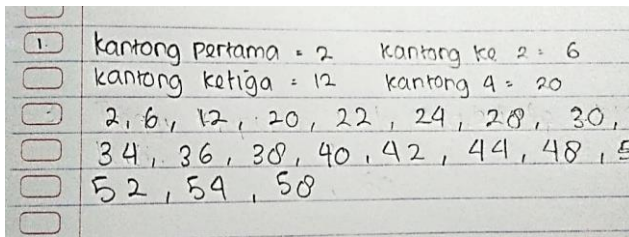 1. Kantong pertama = 2 Kantong ke 2 = 6
Kantong ketiga = 12 Kantong 4 = 20
2, 6, 12, 20, 22, 24, 28, 30,
34, 36, 38, 40, 42, 44, 48, 5
52, 54, 58